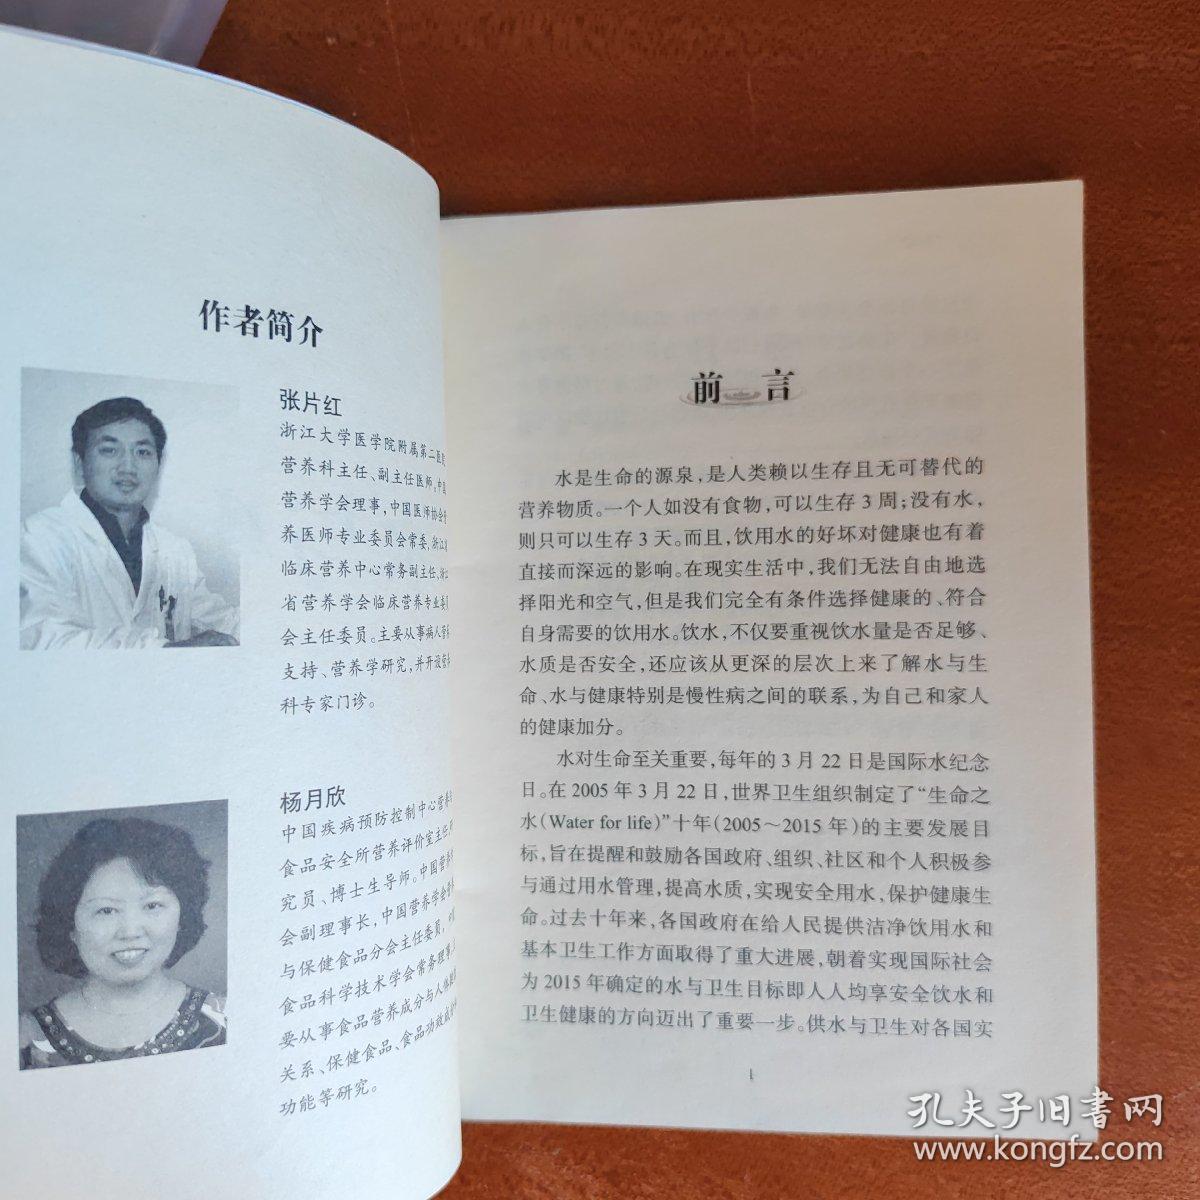 作者简介
张片红
浙江大学医学院附属第二医院
营养科主任、副主任医师,中国
营养学会理事,中国医师协会营
养医师专业委员会常委,浙江省
临床营养中心常务副主任、浙江
省营养学会临床营养专业委员
会主任委员。主要从事病人营养
支持、营养学研究,并开设营养
科专家门诊。
杨月欣
中国疾病预防控制中心营养
食品安全所营养评价室主任、研
究员、博士生导师。中国营养学
会副理事长,中国营养学会营养
与保健食品分会主任委员,中国
食品科学技术学会常务理事。主
要从事食品营养成分与人体健康
关系、保健食品、食品功效成分
功能等研究。
前言
水是生命的源泉,是人类赖以生存且无可替代的
营养物质。一个人如没有食物,可以生存 3 周;没有水,
则只可以生存 3 天。而且,饮用水的好坏对健康也有着
直接而深远的影响。在现实生活中,我们无法自由地选
择阳光和空气,但是我们完全有条件选择健康的、符合
自身需要的饮用水。饮水,不仅要重视饮水量是否足够、
水质是否安全,还应该从更深的层次上来了解水与生
命、水与健康特别是慢性病之间的联系,为自己和家人
的健康加分。
水对生命至关重要,每年的 3 月 22 日是国际水纪念
日。在 2005 年 3 月 22 日,世界卫生组织制定了“生命之
水(Water for life)”十年(2005～2015 年)的主要发展目
标,旨在提醒和鼓励各国政府、组织、社区和个人积极参
与通过用水管理,提高水质,实现安全用水,保护健康生
命。过去十年来,各国政府在给人民提供洁净饮用水和
基本卫生工作方面取得了重大进展,朝着实现国际社会
为 2015 年确定的水与卫生目标即人人均享安全饮水和
卫生健康的方向迈出了重要一步。供水与卫生对各国实
1
孔夫子旧书网
www.kongfz.com